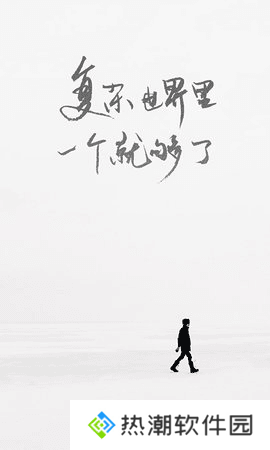 复杂世界里
一个就够了
热潮软件园